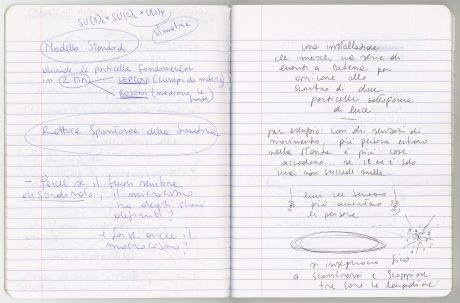 SU(3)c × SU(2)L × U(1)Y
simmetria
Modello Standard
divide le particelle fondamentali
in 2 tipi
LEPTONI (campi di materia)
BOSONI (mediano le forze)
Rottura Spontanea della simmetria
- Perché se il fuori sembra
disordinato, il microcosmo
ha degli schemi
definiti?
e forse anche il
macrocosmo?
una installazione
che inneschi una serie di
eventi a catena per
arrivare allo
scontro di due
particelle sottoforma
di luce
per esempio: con dei sensori di
movimento, più persone entrano
nella stanza e più cose
accadono... se ce ne è solo
una non succede nulla.
più aumentano
le persone
si inseguono fino
a scontrarsi e scoppiare